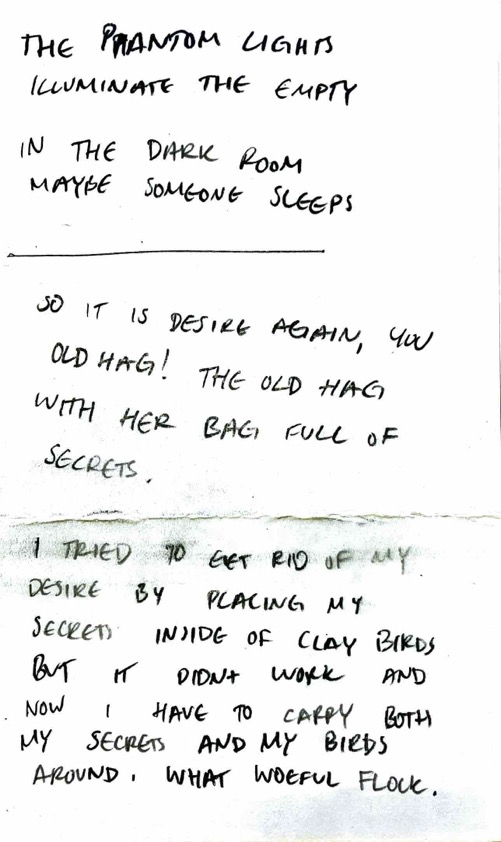 THE PHANTOM LIGHTS
ILLUMINATE THE EMPTY
IN THE DARK ROOM
MAYBE SOMEONE SLEEPS
SO IT IS DESIRE AGAIN, YOU
OLD HAG! THE OLD HAG
WITH HER BAG FULL OF
SECRETS.
I TRIED TO GET RID OF MY
DESIRE BY PLACING MY
SECRETS INSIDE OF CLAY BIRDS
BUT IT DIDNT WORK AND
NOW I HAVE TO CARRY BOTH
MY SECRETS AND MY BIRDS
AROUND. WHAT WOEFUL FLOCK.